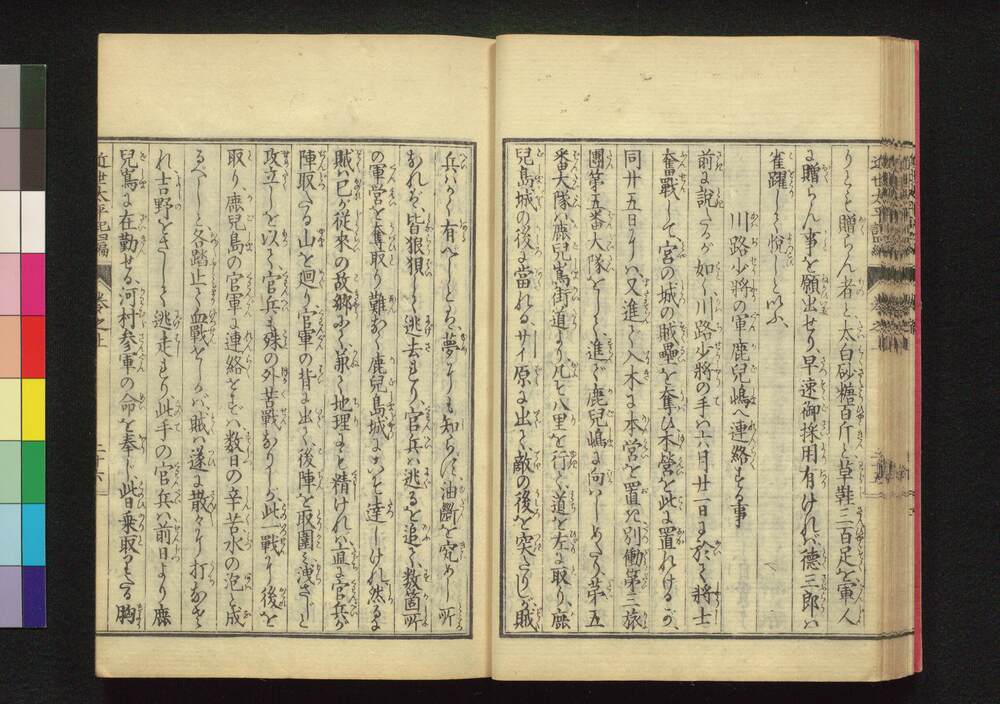 りとも贈らん者と、太白砂糖百斤と、草鞋三百足を軍人
に贈らん事を願出せり、早速御採用有ければ、德三郎ハ
雀躍して悦しと以ふ、
川路少將の軍鹿兒嶋へ連絡する事
前に説たるが如く、川路少將の手ハ六月廿一日に於て將士
奮戰して宮の城の賊壘を奪ひ本營を此に置れけるが、
同廿五日にハ、又進て入木に本營を置き別働第三旅
團第五番大隊をして、進で鹿兒嶋に向ハしめたり、第五
番大隊ハ鹿兒嶌街道より、凡そ八里を行て、道を左に取り、鹿
兒島城の後に當れる、サイ原に出て敵の後を突たりしが、賊
兵ハかく有べしとハ、夢にも知らず、油斷を究めし所
なれバ、皆狼狽して逃去たり、官兵ハ逃るを追て、数箇所
の軍營を奪取り難なく鹿兒島城にハ達しけれ然るに
賊ハ已が從來の故郷にて、兼て地理にも精けれバ、直に官兵が
陣取たる山を廻り、官軍の背に出て、後陣を取圍み洩さじと
攻立しを以て、官兵も殊の外苦戰なりしが、此一戰にて後を
取り、鹿兒島の官軍に連絡をせずバ、数日の辛苦水の泡と成
るべしと、各踏止て血戰をしけれバ、賊ハ遂に散々に打なさ
れ、吉野をさして逃走たり、此手の官兵ハ、前日より鹿
兒嶌に在勤せる、河村参軍の命を奉じ、此日乗取つたる胸
近世太平記四編
巻之上
二十六